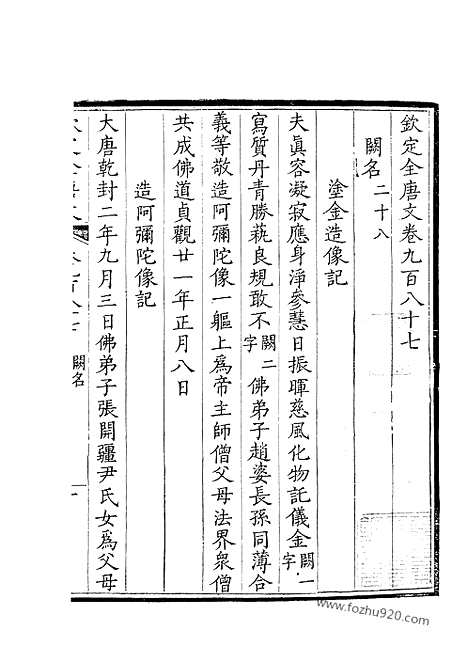 欽定全唐文卷九百八十七
闕名二十八
塗金造像記
夫眞容凝寂應身淨參慧日振暉慈風化物託儀金闕一字
寫質丹青勝蓺良規敢不闕二字佛弟子趙婆長孫同薄合
義等敬造阿彌陀像一軀上爲帝主師僧父母法界衆僧
共成佛道貞觀廿一年正月八日
造阿彌陀像記
大唐乾封二年九月三日佛弟子張開疆尹氏女爲父母
闕名
www.fozhu920.com